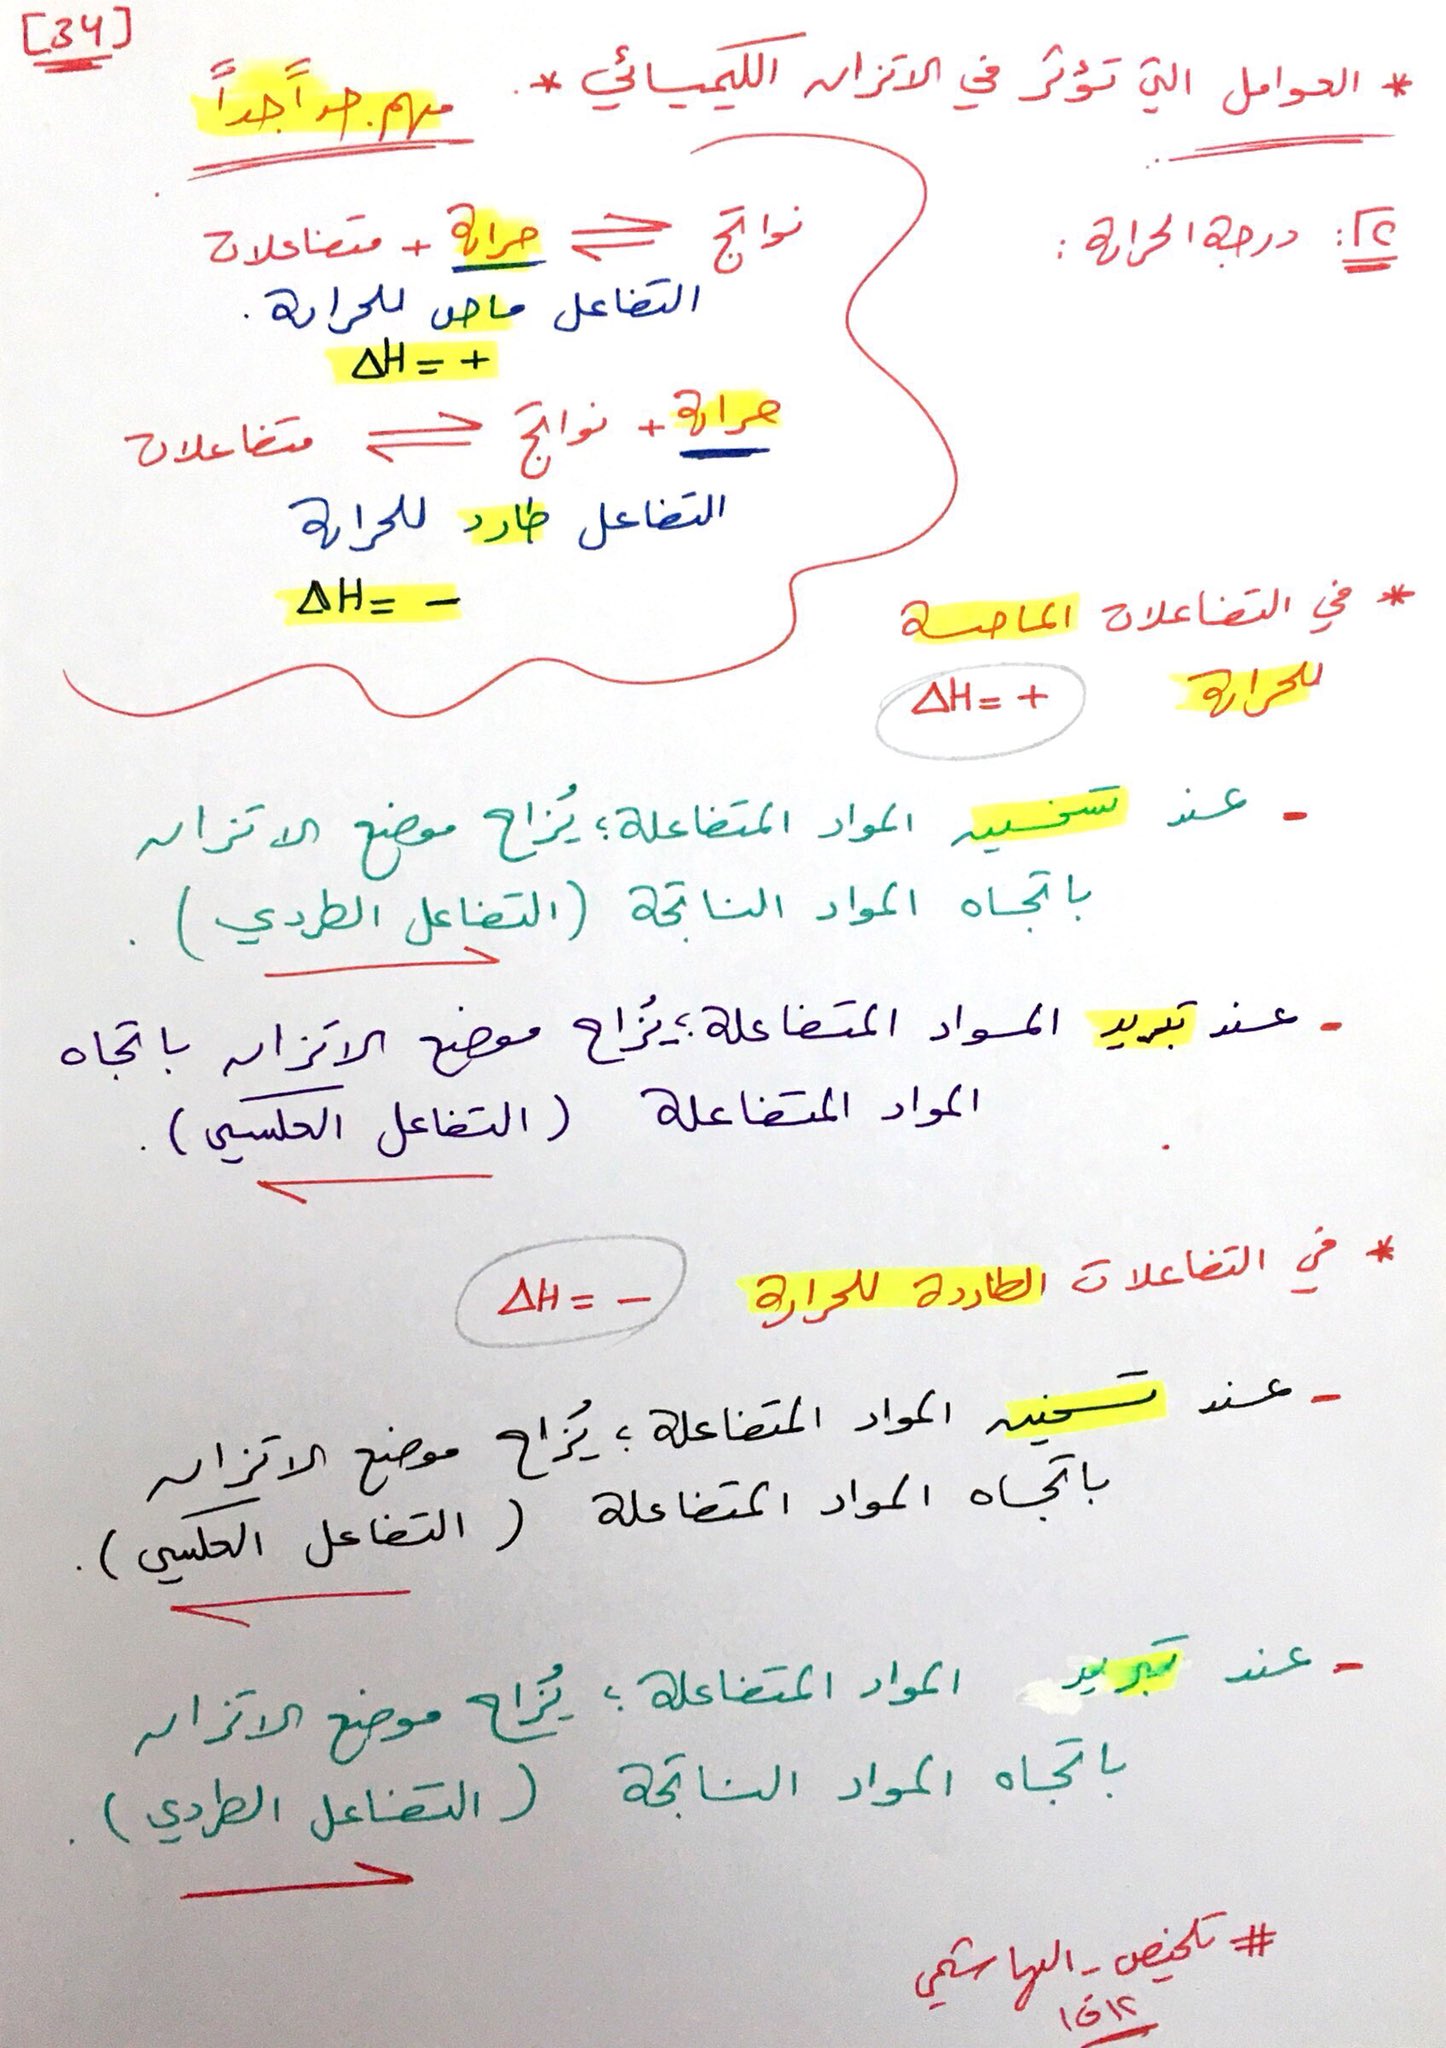 [34]
* العوامل التي تؤثر في الاتزان الكيميائي *.
مهم جداً جداً
٢: درجة الحرارة :
متفاعلات + حرارة ⇌ نواتج
التفاعل ماص للحرارة .
ΔH = +
متفاعلات ⇌ نواتج + حرارة
التفاعل طارد للحرارة
ΔH = −
* في التفاعلات الماصة
للحرارة ΔH = +
- عند تسخين المواد المتفاعلة؛ يُزاح موضع الاتزان
باتجاه المواد الناتجة (التفاعل الطردي) .
- عند تبريد المواد المتفاعلة؛ يُزاح موضع الاتزان باتجاه
المواد المتفاعلة (التفاعل العكسي) .
* في التفاعلات الطاردة للحرارة ΔH = −
- عند تسخين المواد المتفاعلة؛ يُزاح موضع الاتزان
باتجاه المواد المتفاعلة (التفاعل العكسي) .
- عند تبريد المواد المتفاعلة؛ يُزاح موضع الاتزان
باتجاه المواد الناتجة (التفاعل الطردي) .
# تلخيص - الهاشمي